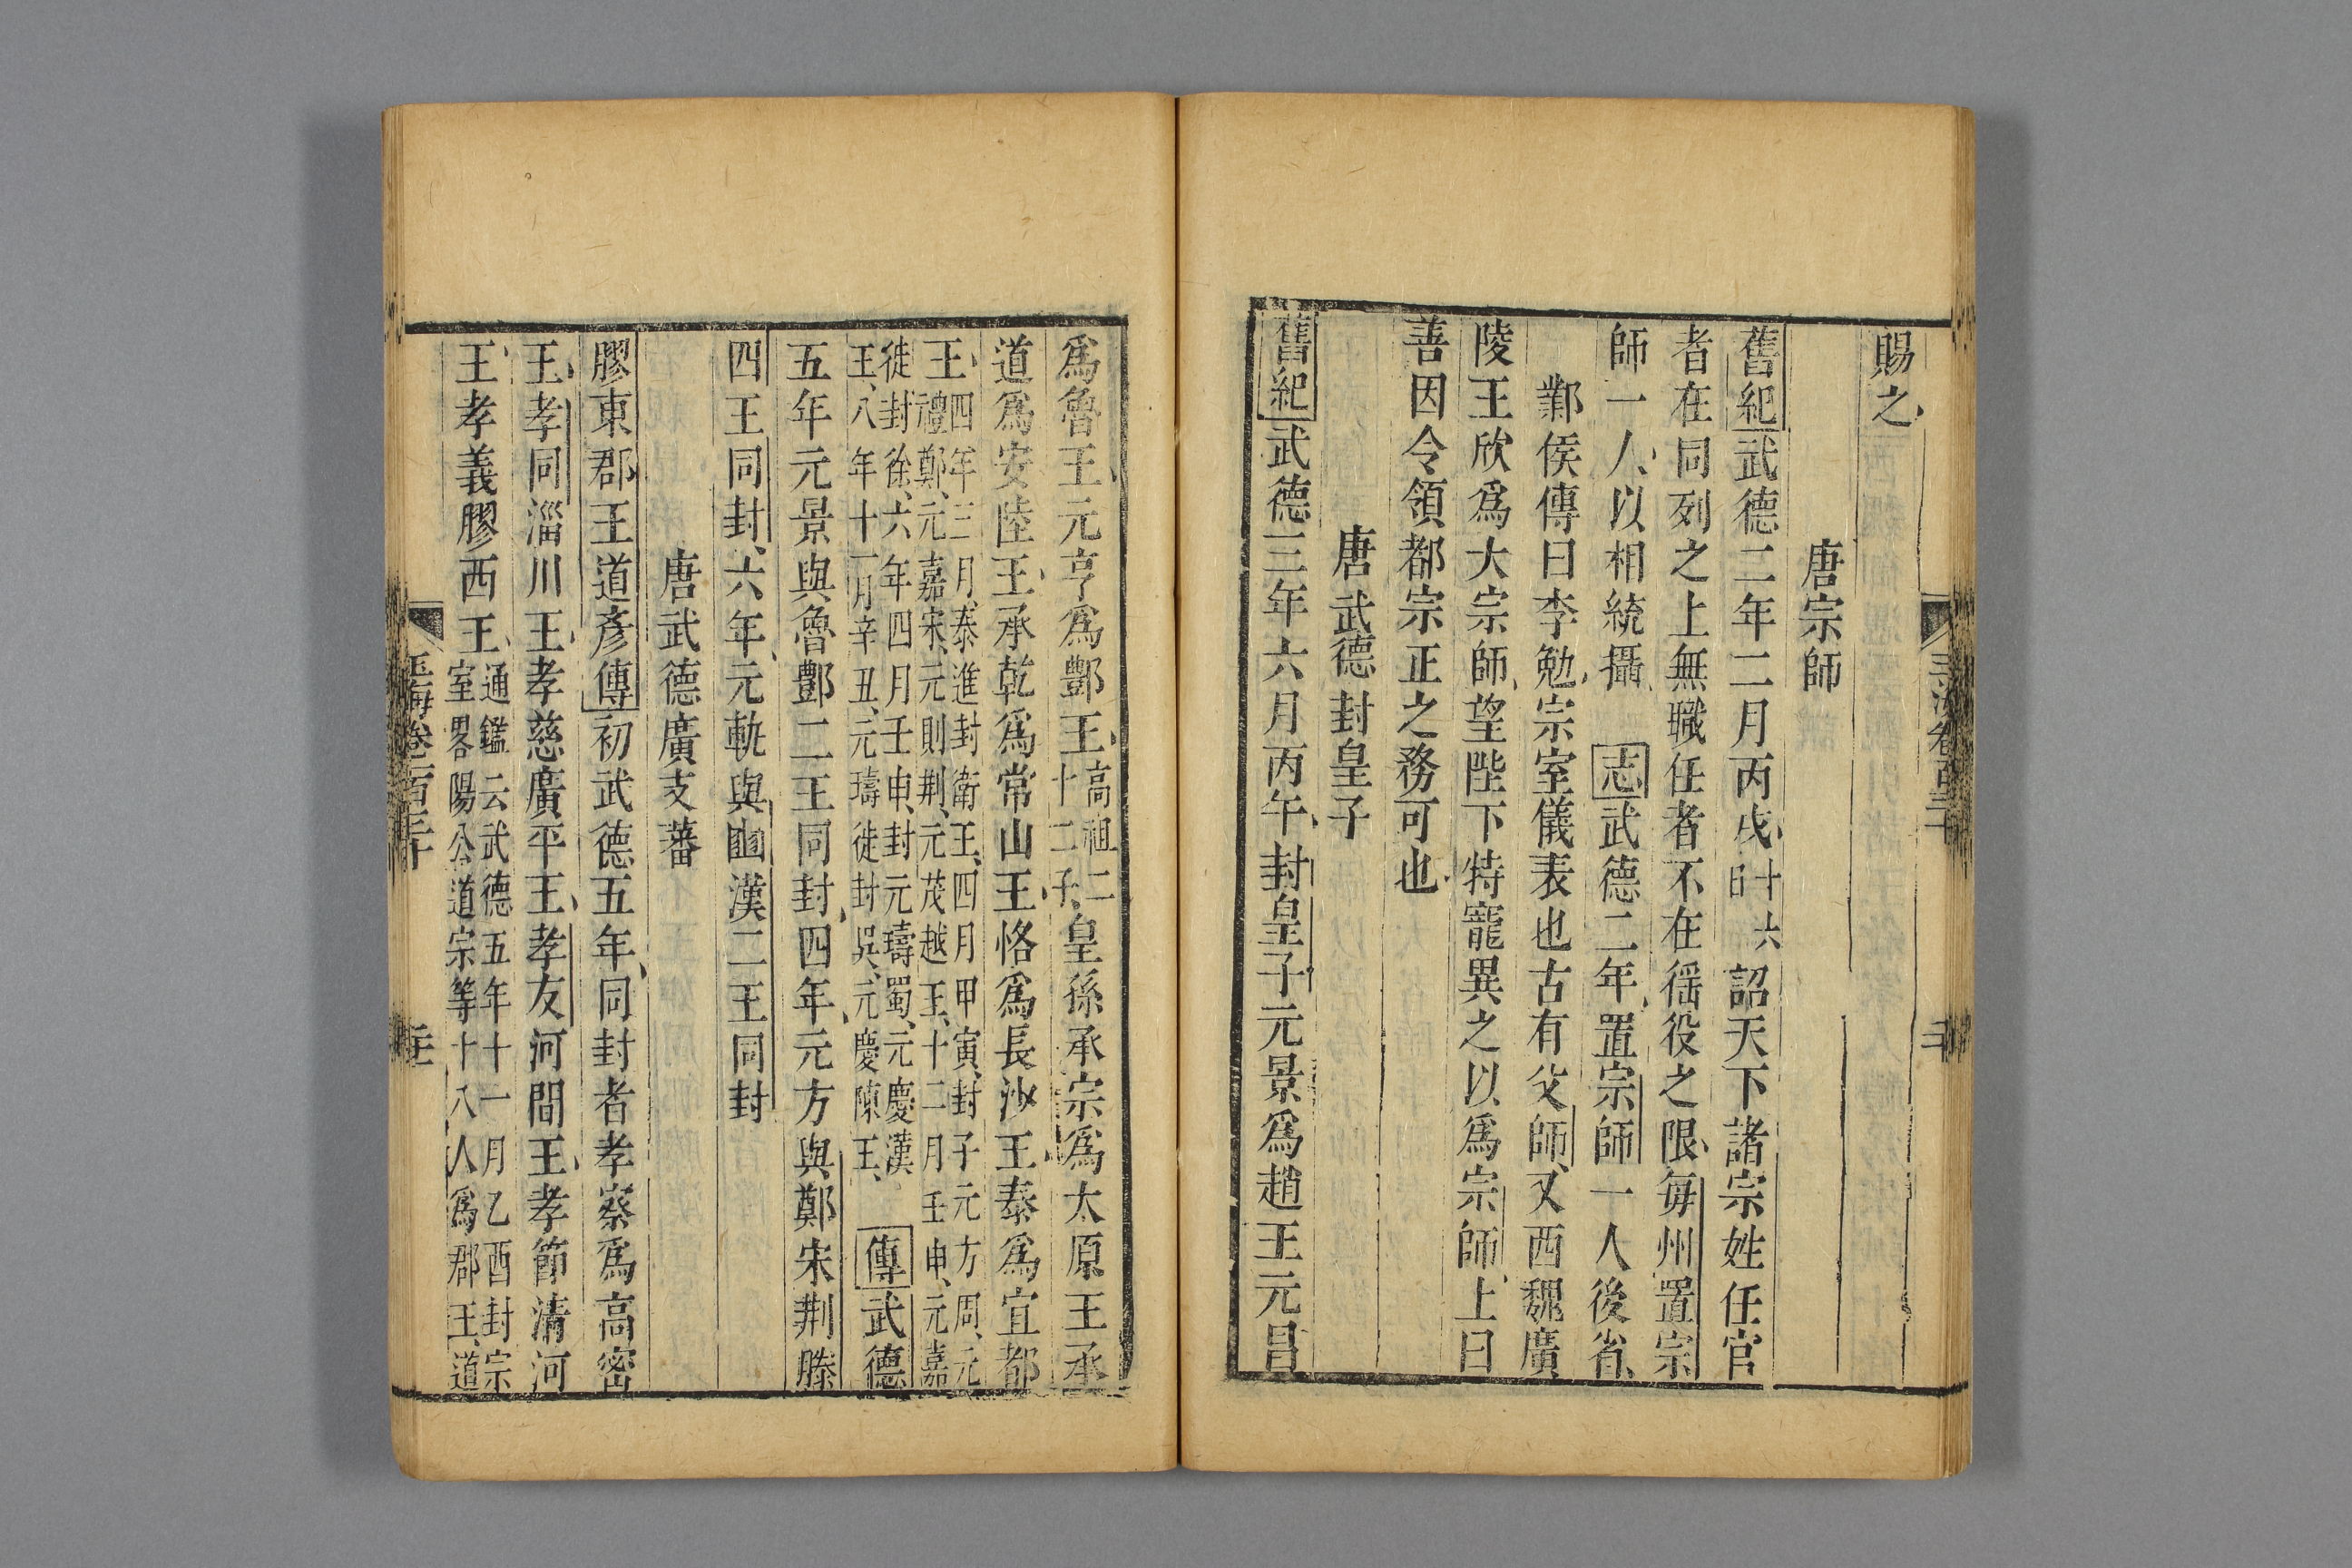 賜之
唐宗師
舊紀武德二年二月丙戌十六日詔天下諸宗姓任官
者在同列之上無職任者不在徭役之限每州置宗
師一人以相統攝 志武德二年置宗師一人後省
鄴侯傳曰李勉宗室儀表也古有父師又西魏廣
陵王欣爲大宗師望陛下特寵異之以爲宗師上曰
善因令領都宗正之務可也
唐武德封皇子
舊紀武德三年六月丙午封皇子元景爲趙王元昌
爲魯王元亨爲酆王高祖二十二子皇孫承宗爲太原王承
道爲安陸王承乾爲常山王恪爲長沙王泰爲宜都
王四年三月泰進封衛王四月甲寅封子元方周元禮鄭元嘉宋元則荆元茂越王十二月壬申元嘉
徙封徐六年四月壬申封元璹蜀元慶漢王八年十一月辛丑元璹徙封吳元慶陳王 傳武德
五年元景與魯酆二王同封四年元方與鄭宋荆滕
四王同封六年元軌與豳漢二王同封
唐武德廣支蕃
膠東郡王道彥傳初武德五年同封者孝察爲高密
王孝同淄川王孝慈廣平王孝友河間王孝節清河
王孝義膠西王通鑑云武德五年十一月乙酉封宗室畧陽公道宗等十八人爲郡王道
玉海卷一百三十